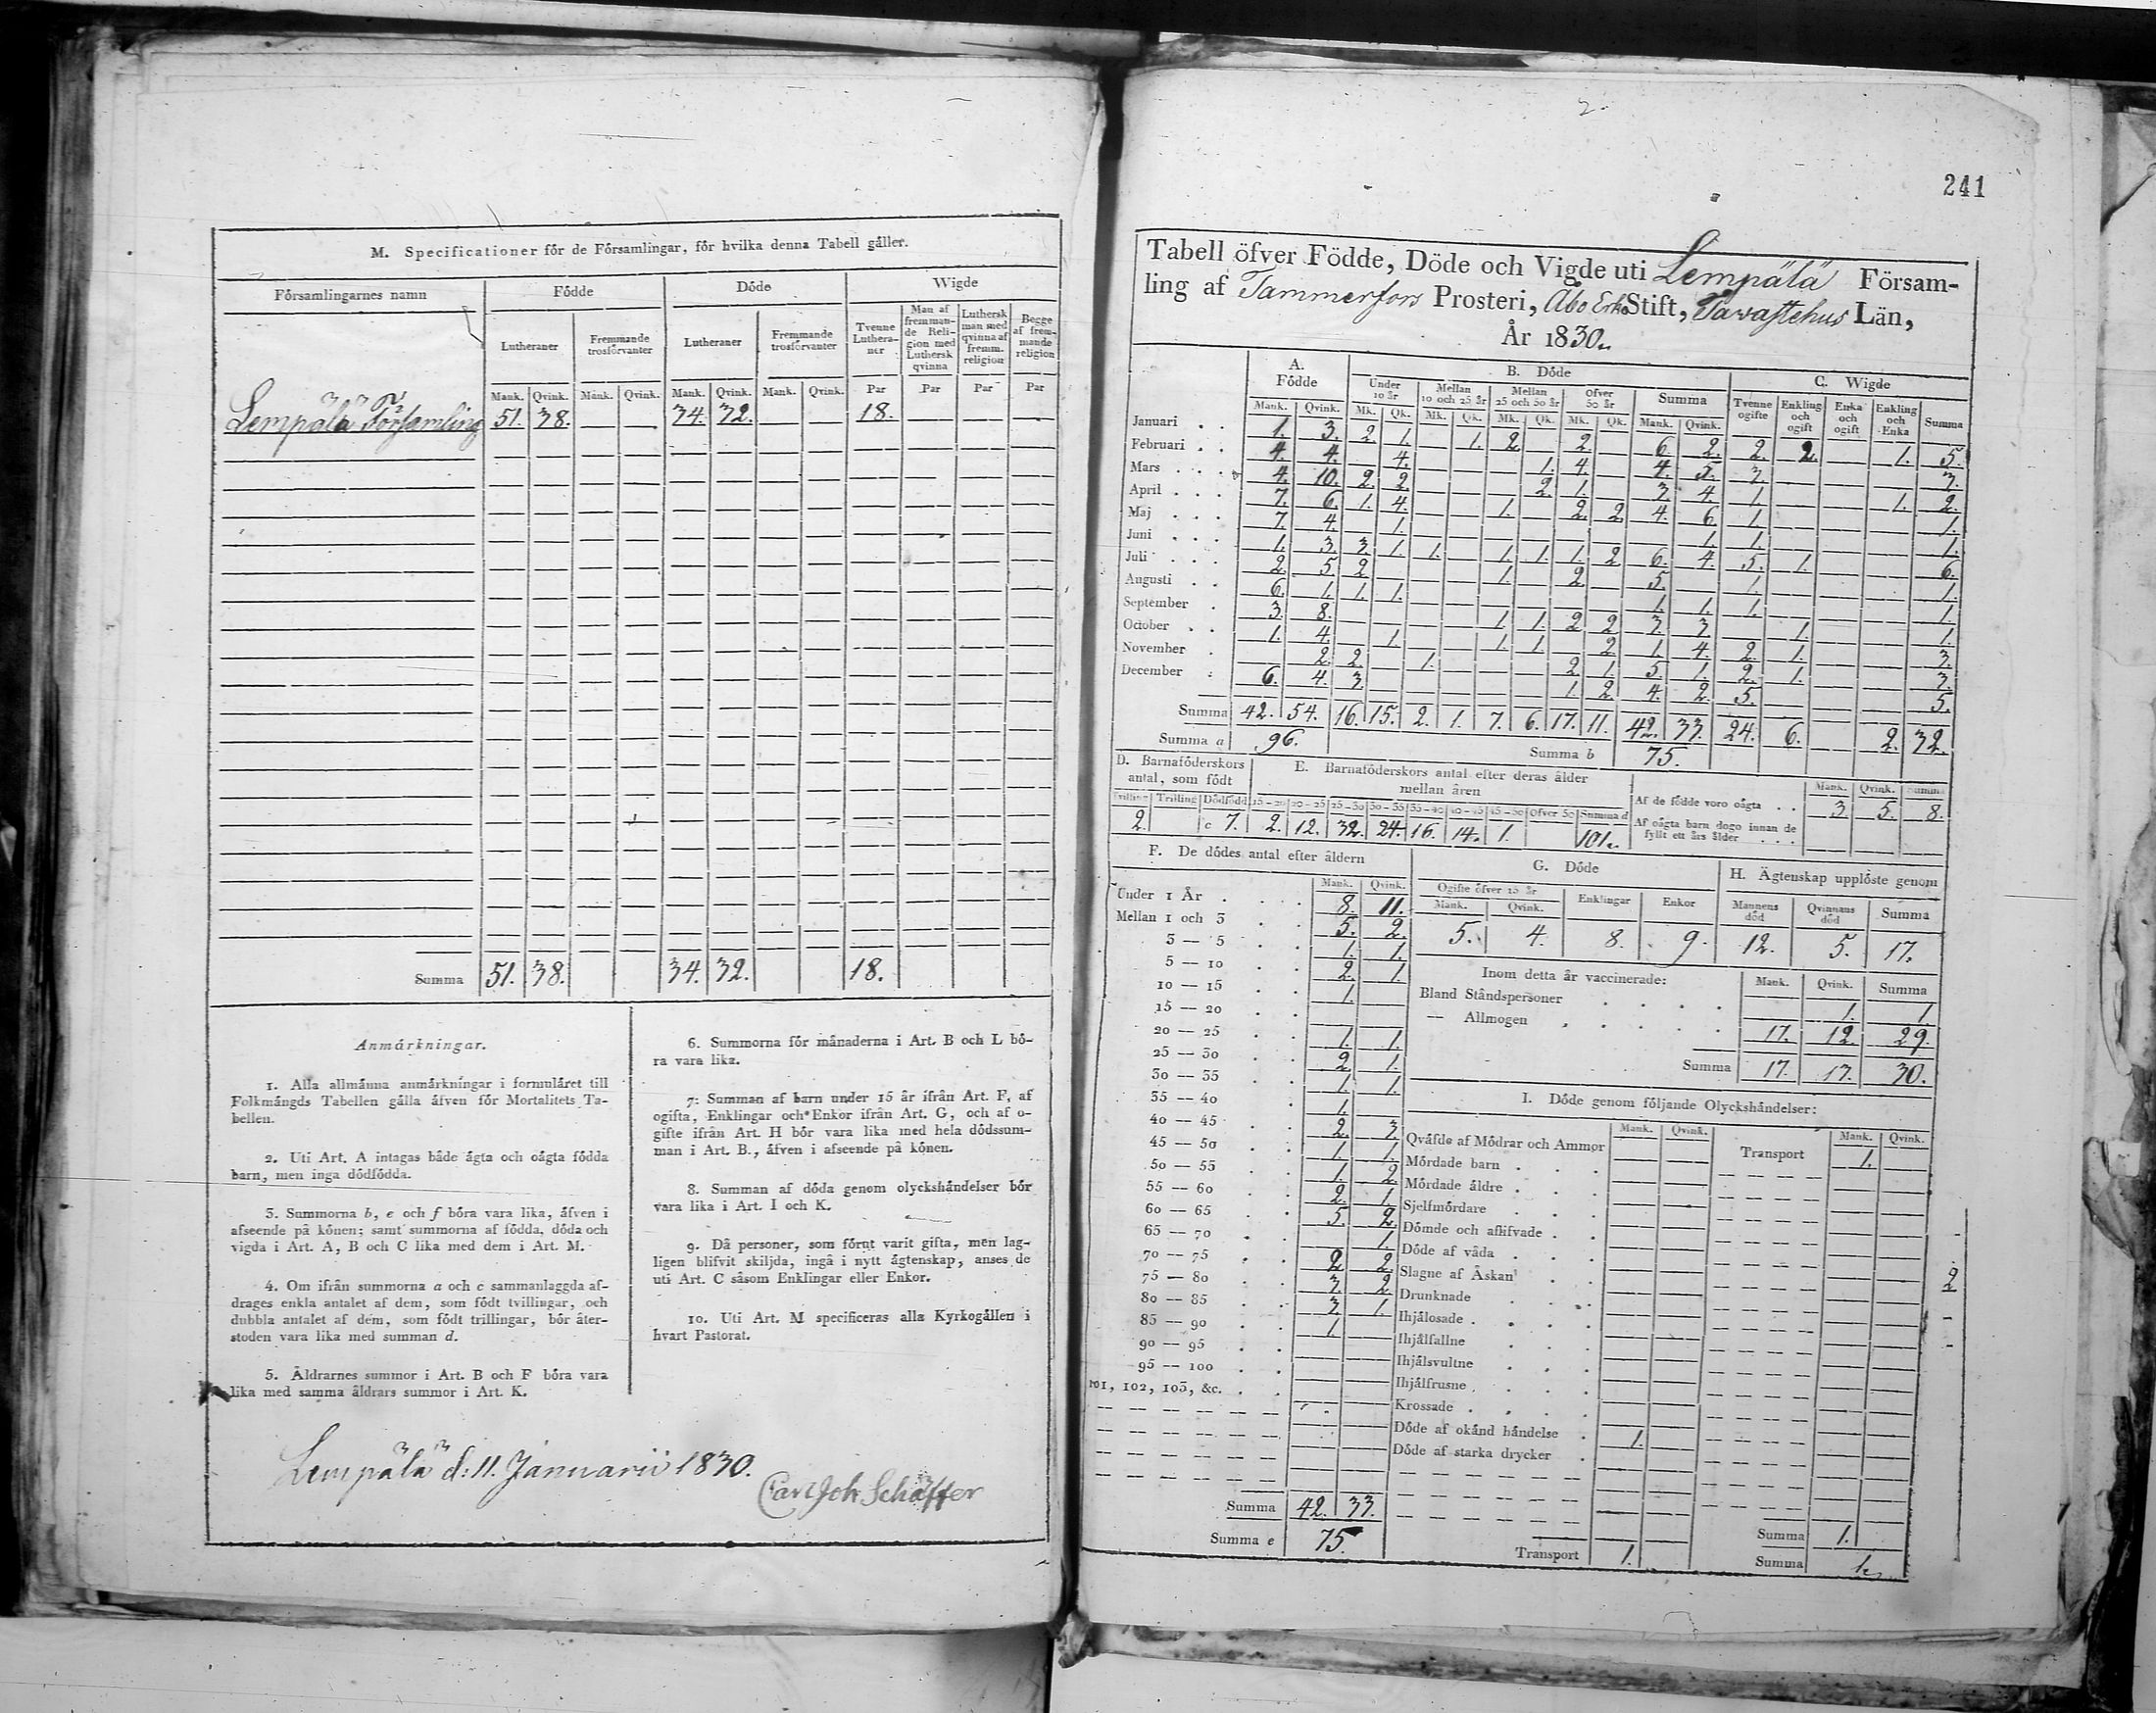 M. Specificationer för de Församlingar, för hvilka denna Tabell gäller.
Församlingarnes namn Födde Döde Wigde
Lutheraner Fremmande trosförvanter Lutheraner Fremmande trosförvanter Tvenne Lutheraner Man af fremmande Religion med Luthersk qvinna Luthersk man med qvinna af fremm. religion Begge af fremmande religion
Mank. Qvink. Mank. Qvink. Mank. Qvink. Mank. Qvink. Par Par Par Par
Lempälä Församling 51. 38. — — 34. 32. — — 18. — — —
Summa 51. 38. 34. 32. 18.
Anmärkningar.
1. Alla allmänna anmärkningar i formuläret till
Folkmängds Tabellen gälla äfven för Mortalitets Ta-
bellen.
2. Uti Art. A intagas både ägta och oägta födda
barn, men inga dödfödda.
3. Summorna b, e och f böra vara lika, äfven i
afseende på könen; samt summorna af födda, döda och
vigda i Art. A, B och C lika med dem i Art. M.
4. Om ifrån summorna a och c sammanlaggda af-
drages enkla antalet af dem, som födt tvillingar, och
dubbla antalet af dem, som födt trillingar, bör åter-
stoden vara lika med summan d.
5. Åldrarnes summor i Art. B och F böra vara
lika med samma åldrars summor i Art. K.
6. Summorna för månaderna i Art. B och L bö-
ra vara lika.
7. Summan af barn under 15 år ifrån Art. F, af
ogifta, Enklingar och Enkor ifrån Art. G, och af o-
gifte ifrån Art. H bör vara lika med hela dödssum-
man i Art. B., äfven i afseende på könen.
8. Summan af döda genom olyckshändelser bör
vara lika i Art. I och K.
9. Då personer, som förut varit gifta, men lag-
ligen blifvit skiljda, ingå i nytt ägtenskap, anses de
uti Art. C såsom Enklingar eller Enkor.
10. Uti Art. M specificeras alla Kyrkogällen i
hvart Pastorat.
Lempälä d: 11. Januarii 1830.
Carl Joh Schäffer
2.
241
Tabell öfver Födde, Döde och Vigde uti Lempälä Försam-
ling af Tammerfors Prosteri, Åbo Erke Stift, Tavastehus Län,
År 1830.
A. Födde B. Döde C. Wigde
Under 10 år Mellan 10 och 25 år Mellan 25 och 50 år Öfver 50 år Summa Tvenne ogifte Enkling och ogift Enka och ogift Enkling och Enka Summa
Mank. Qvink. Mk. Qk. Mk. Qk. Mk. Qk. Mk. Qk. Mank. Qvink.
Januari 1. 3. 2. 1. — 1. 2. — 2. — 6. 2. 2. 2. — 1. 5.
Februari 4. 4. — 4. — — — 1. 4. — 4. 5. 3. — — — 3.
Mars 4. 10. 2. 2. — — — 2. 1. — 3. 4. 1. — — 1. 2.
April 7. 6. 1. 4. — — 1. — 2. 2. 4. 6. 1. — — — 1.
Maj 7. 4. — 1. — — — — — — — 1. 1. — — — 1.
Juni 1. 3. 3. 1. 1. — 1. 1. 1. 2. 6. 4. 5. 1. — — 6.
Juli 2. 5. 2. — — — 1. — 2. — 5. — 1. — — — 1.
Augusti 6. 1. 1. 1. — — — — — — 1. 1. 1. — — — 1.
September 3. 8. — — — — 1. 1. 2. 2. 3. 3. — 1. — — 1.
October 1. 4. — 1. — — 1. 1. — 2. 1. 4. 2. 1. — — 3.
November — 2. 2. — 1. — — — 2. 1. 5. 1. 2. 1. — — 3.
December 6. 4. 3. — — — — — 1. 2. 4. 2. 5. — — — 5.
Summa 42. 54. 16. 15. 2. 1. 7. 6. 17. 11. 42. 33. 24. 6. 2. 32.
Summa a 96. Summa b 75.
D. Barnaföderskors antal, som födt
E. Barnaföderskors antal efter deras ålder mellan åren
Tvilling Trilling Dödfödd 15-20 20-25 25-30 30-35 35-40 40-45 45-50 Öfver 50 Summa d
2. c 7. 2. 12. 32. 24. 16. 14. 1. 101.
Mank. Qvink. Summa
Af de födde voro oägta 3. 5. 8.
Af oägta barn dogo innan de fyllt ett års ålder — — —
F. De dödes antal efter åldern
Mank. Qvink.
Under 1 År 8. 11.
Mellan 1 och 3 5. 2.
3 — 5 1. 1.
5 — 10 2. 1.
10 — 15 1.
15 — 20
20 — 25 1. 1.
25 — 30 2. 1.
30 — 35 1. 1.
35 — 40 1. —
40 — 45 2. 3.
45 — 50 1. 1.
50 — 55 1. 2.
55 — 60 2. 1.
60 — 65 5. 2.
65 — 70 1.
70 — 75 2. 2.
75 — 80 3. 2.
80 — 85 3. 1.
85 — 90 1. —
90 — 95 — —
95 — 100 — —
101, 102, 103, &c.
Summa 42. 33.
Summa e 75.
G. Döde
Ogifte öfver 15 år Enklingar Enkor
Mank. Qvink.
5. 4. 8. 9.
H. Ägtenskap upplöste genom
Mannens död Qvinnans död Summa
12. 5. 17.
Inom detta år vaccinerade: Mank. Qvink. Summa
Bland Ståndspersoner 1. 1.
— Allmogen 17. 12. 29.
Summa 17. 13. 30.
I. Döde genom följande Olyckshändelser:
Mank. Qvink. Mank. Qvink.
Qväfde af Mödrar och Ammor — — Transport 1. —
Mördade barn
Mördade äldre
Sjelfmördare
Dömde och aflifvade
Döde af våda
Slagne af Åskan
Drunknade
Ihjälosade
Ihjälfallne
Ihjälsvultne
Ihjälfrusne
Krossade
Döde af okänd händelse 1.
Döde af starka drycker
Transport 1.
Summa 1.
Summa 1.
2